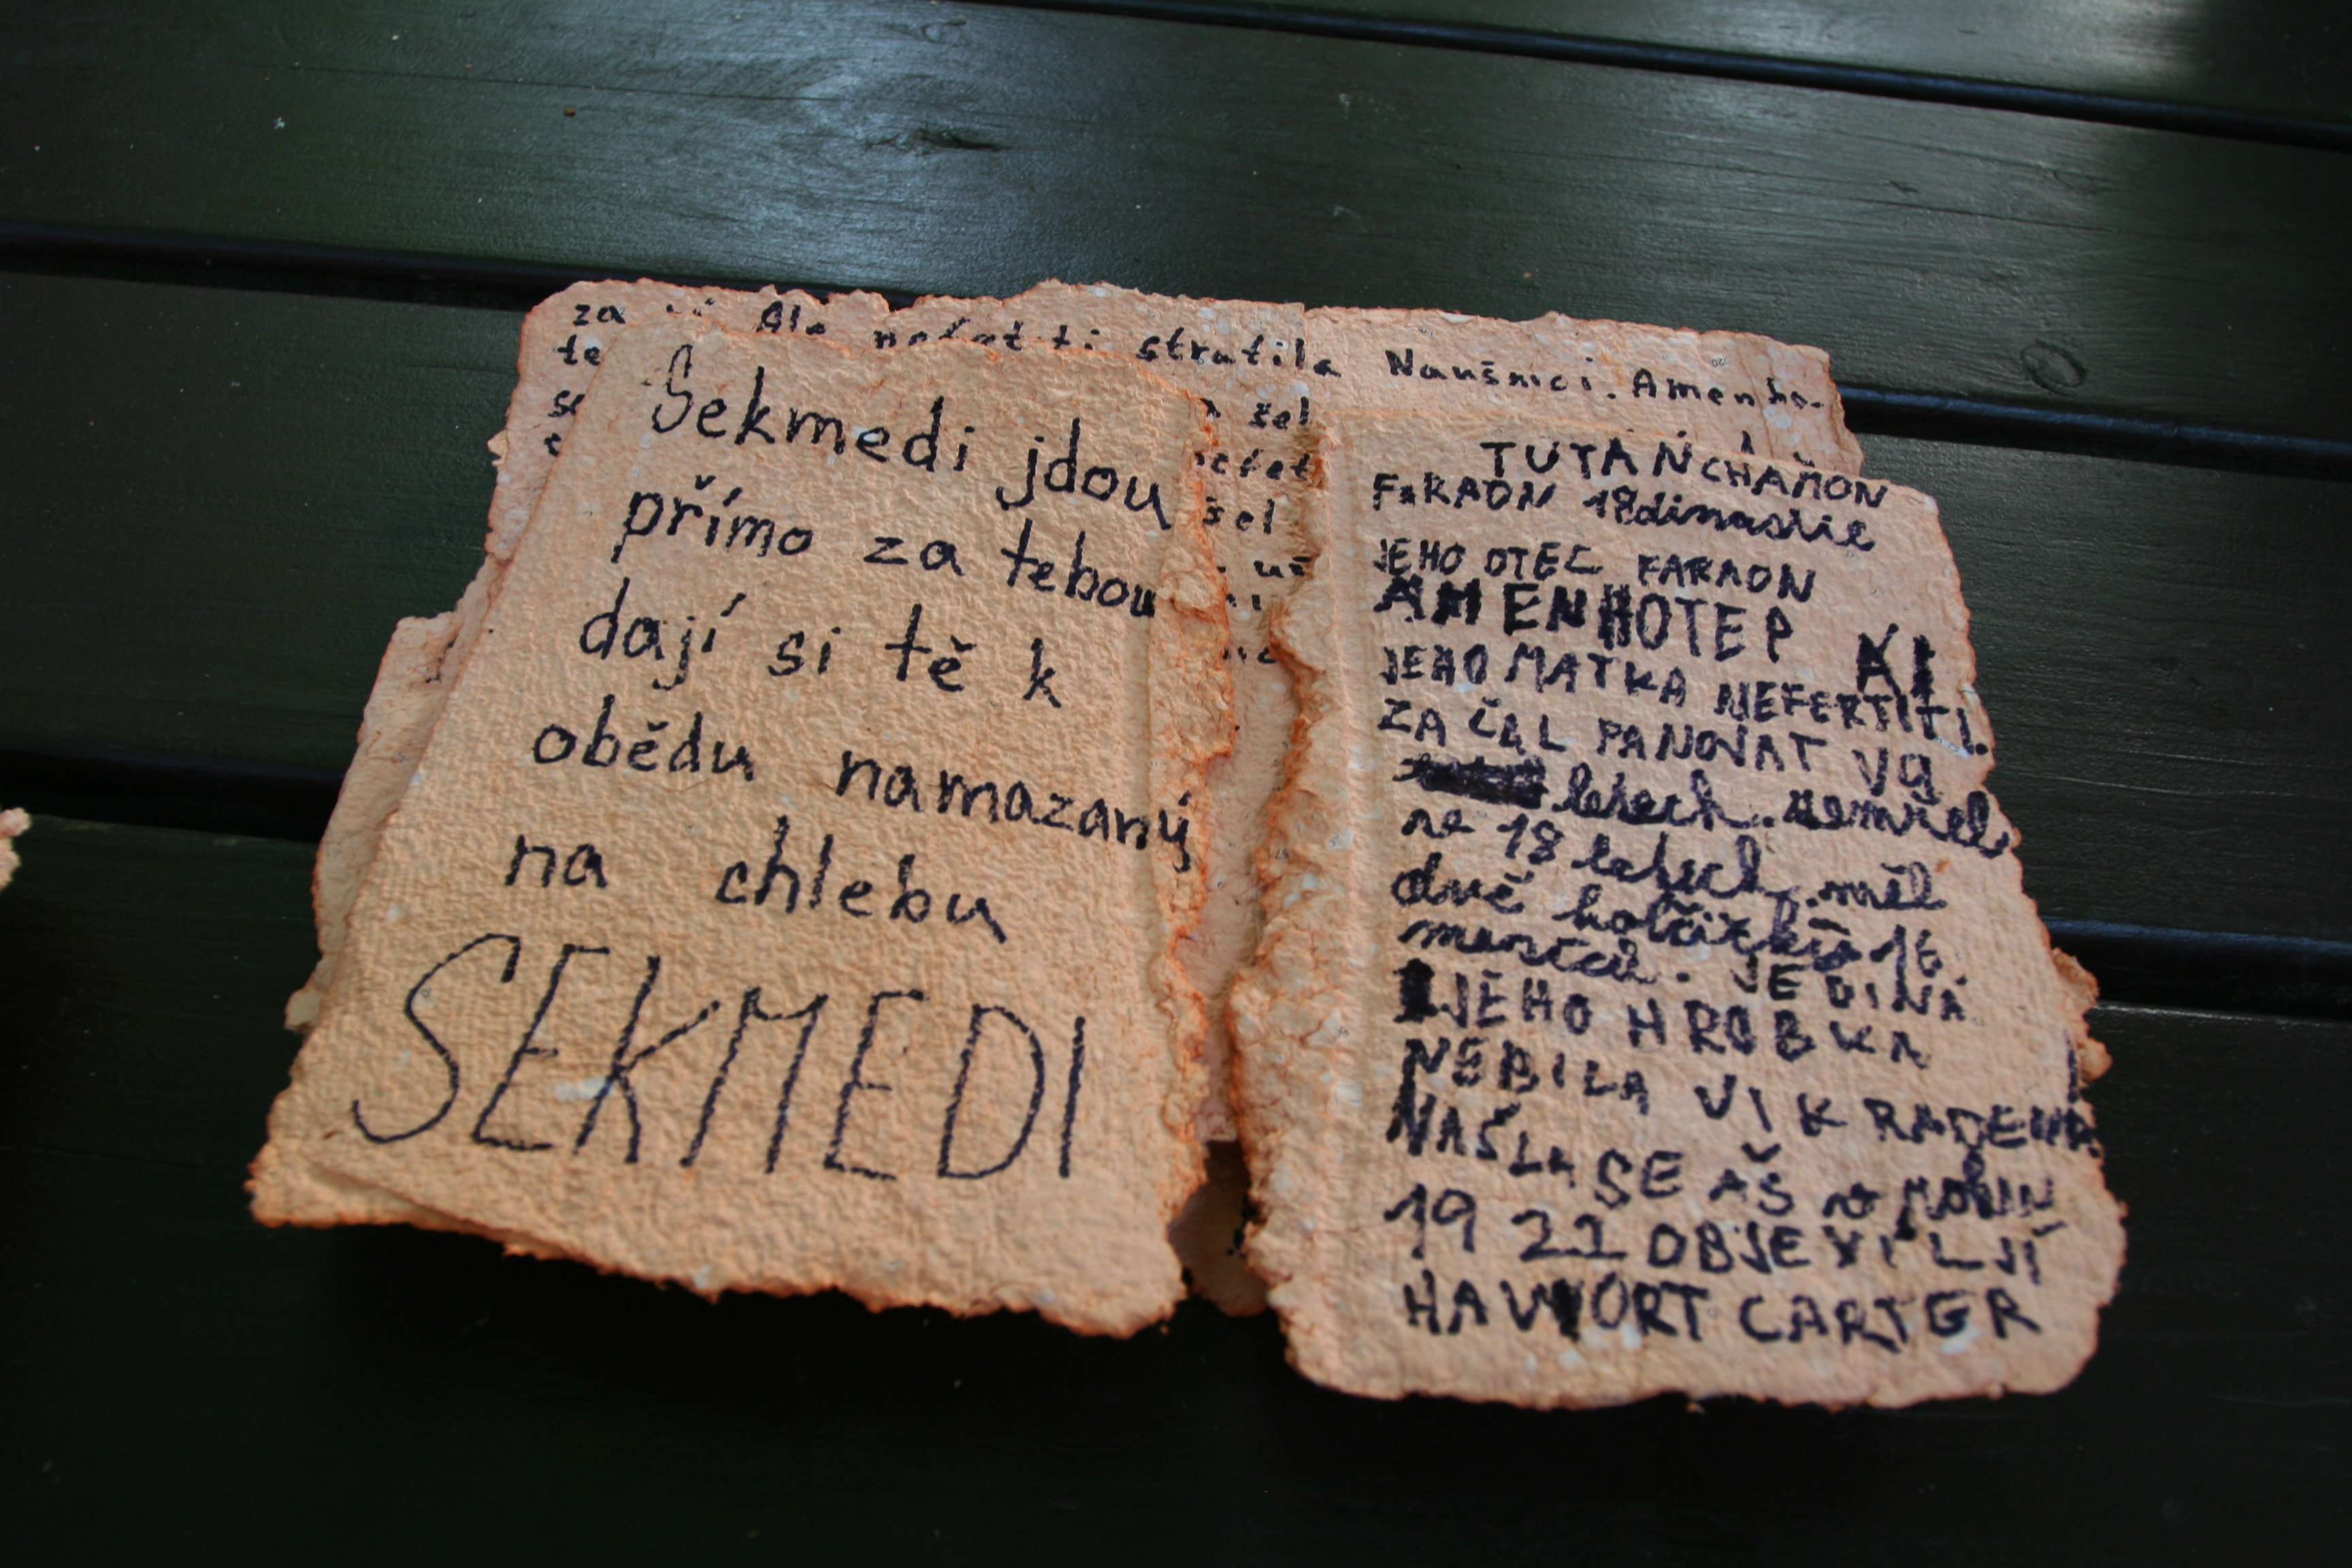 za Ale nefetti stratila Naušnici. Amenho-
te
se šel
šel
Sekmedi jdou
přímo za tebou
dají si tě k
obědu namazaný
na chlebu
SEKMEDI
TUTANCHAMON
FARAON 18dinastie
JEHO OTEC FARAON
AMENHOTEP
JEHO MATKA NEFERTITI.
ZAČAL PANOVAT V9
letech. zemřel
ve 18 letech. měl
dvě holčičky
JEDINÁ
JEHO HROBKA
NEBILA VIKRADENA
NAŠLA SE AŠ
19 22 OBJEVIL JÍ
HAWORT CARTER